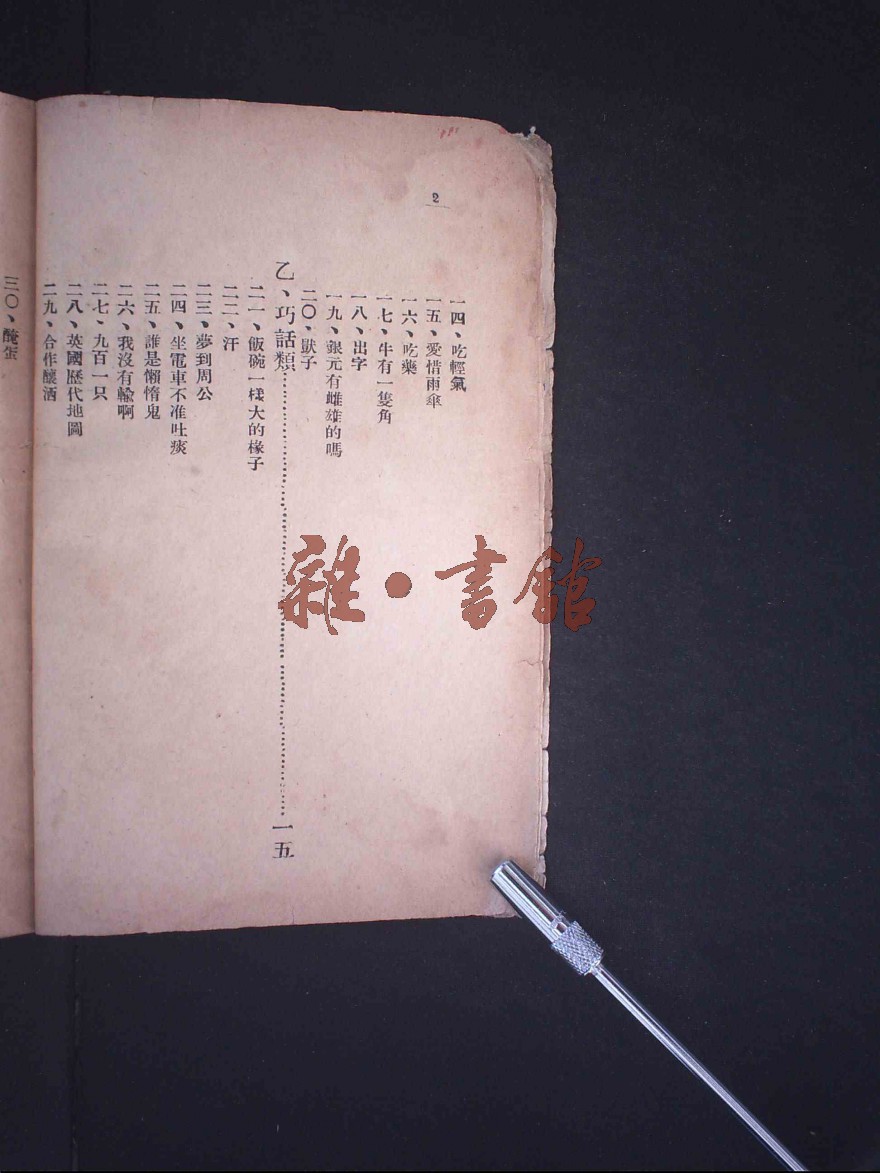 2
一四、吃輕氣
一五、愛惜雨傘
一六、吃藥
一七、牛有一隻角
一八、出字
一九、銀元有雌雄的嗎
二〇、獃子
乙、巧話類……一五
二一、飯碗一樣大的椽子
二二、汗
二三、夢到周公
二四、坐電車不准吐痰
二五、誰是懶惰鬼
二六、我沒有輸啊
二七、九百一只
二八、英國歷代地圖
二九、合作釀酒
三〇、醃蛋
雜·書館